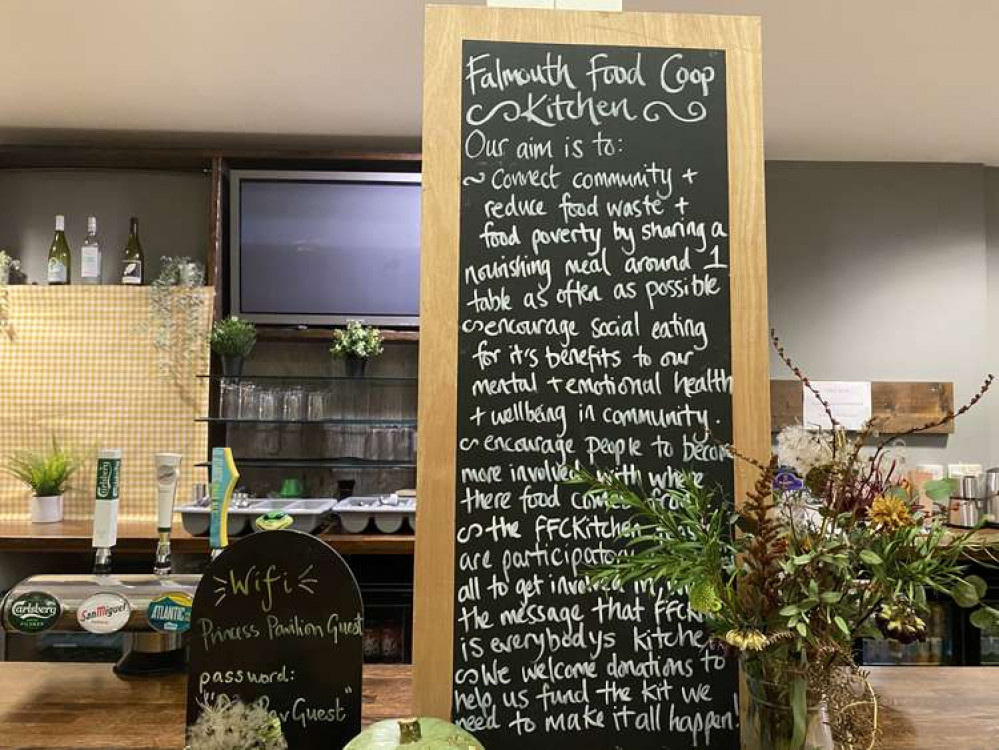 Falmouth Food Coop
Kitchen
Our aim is to:
~ Connect community +
reduce food waste +
food poverty by sharing a
nourishing meal around 1
table as often as possible
~ encourage social eating
for it's benefits to our
mental + emotional health
+ wellbeing in community.
~ encourage people to become
more involved with where
there food
~ the FFCKitchen
are
all to get involved in,
the message that
is everybodys kitchen
~ We welcome donations to
help us fund the kit we
need to make it all happen!
Wifi
Princess Pavilion Guest
password:
Guest"
Carlsberg
Carlsberg
PILSNER
San Miguel
ATLANTIC